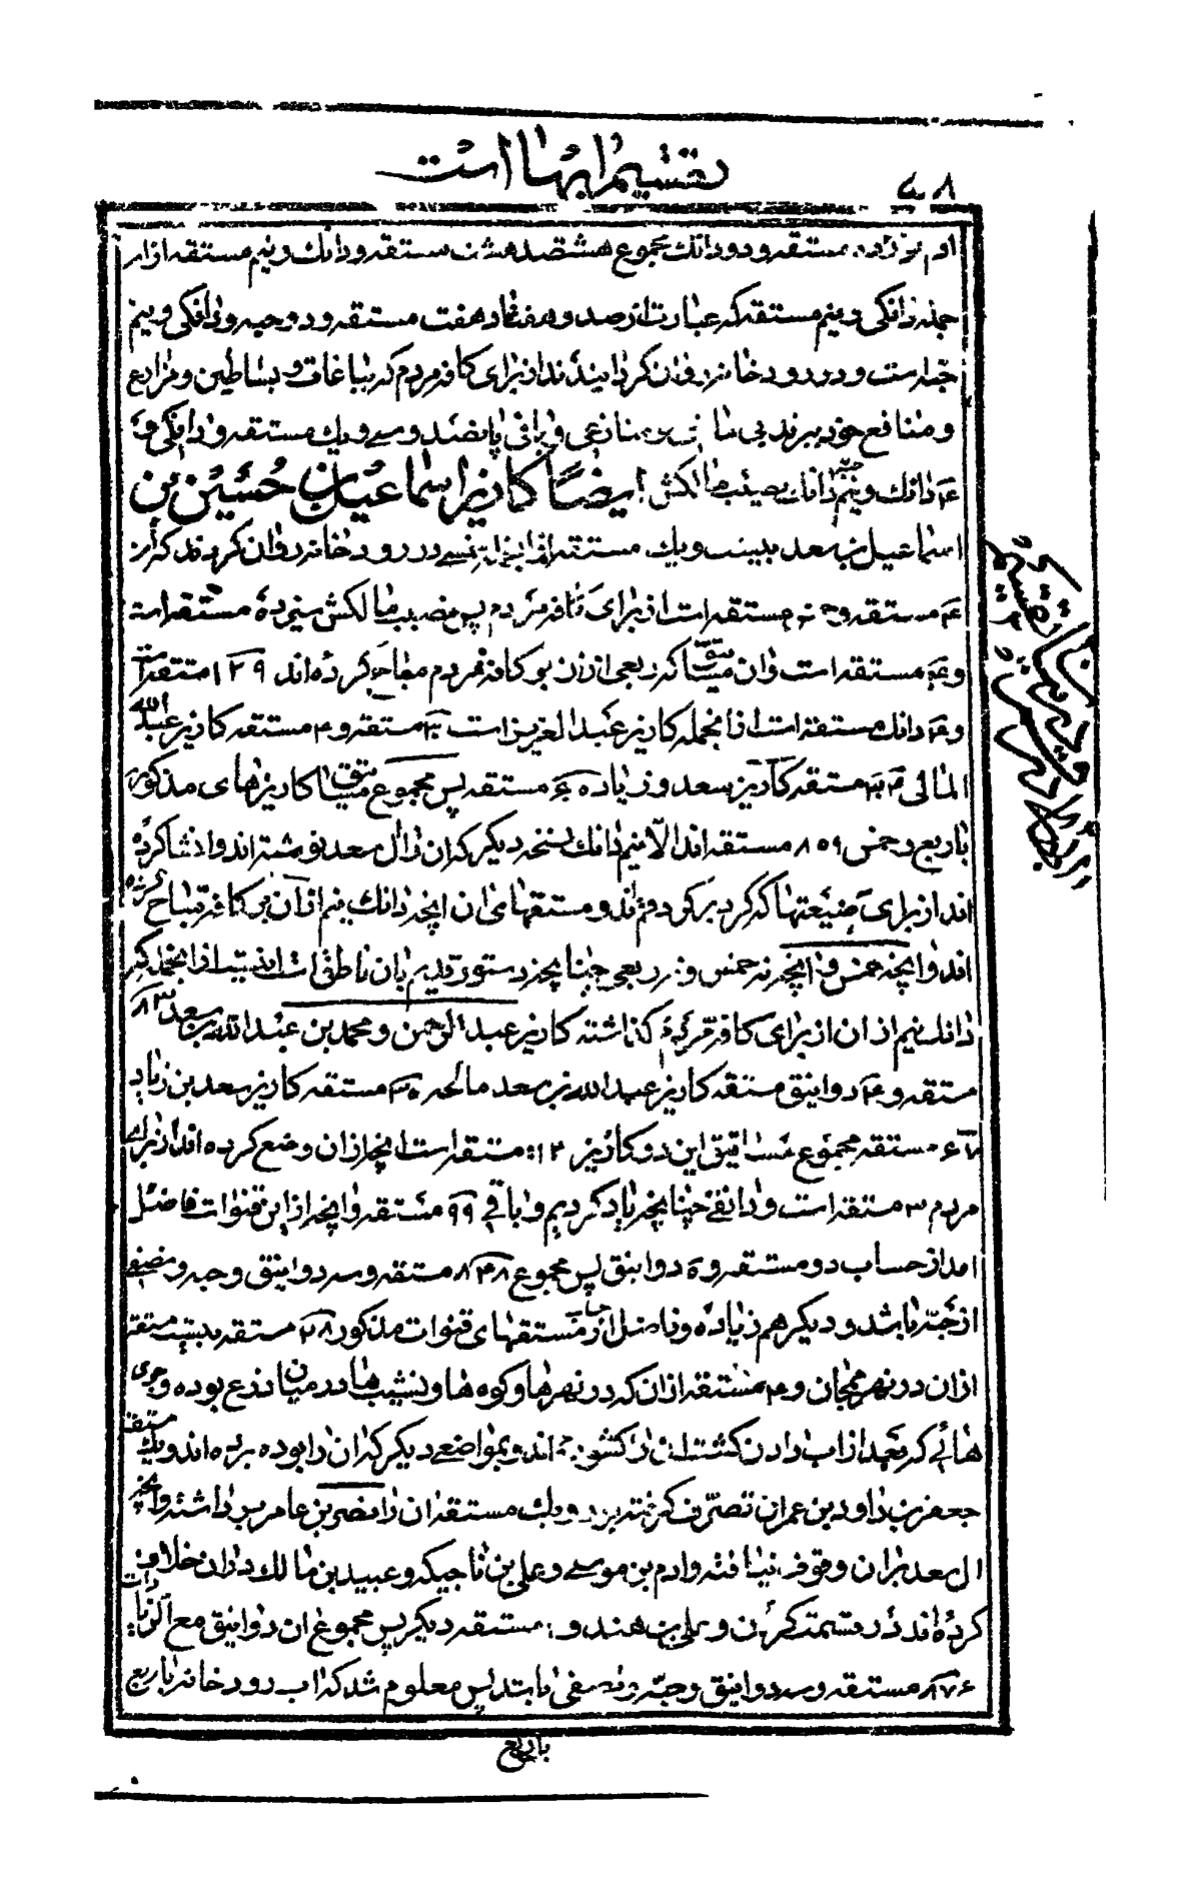 تقسیم ابها است
۷۸
مستقه و دو دانك مجموع هشتصد هشت مستقه و دانك و نیم مستقه از ان
جمله دانگی و نیم مستقه که عبارت از صد و هفتاد هفت مستقه و دو حبه و دانگی و نیم
حبه است و در رودخانه روان گردانیده‌اند از برای کافه مردم که بباغات و بساطین و مزارع
و منافع خود ببرند بی و باقی پانصد و سی و یك مستقه و دانگی و
دانك و نیم دانك بصیب مالکش ایضا کاریز اسماعیل بن حسین بن
اسماعیل بن سعد ببیست و یك مستقه در رودخانه روان کردند که از
مستقه و مستقه است از برای کافه مردم پس نصیب مالکش سیزده مستقه است
و مستقه است و ان میساکه ربعی از ان بر کافه مردم مباح کرده‌اند ۱۳۹ مستقه است
و دانك مستقه است از انجمله کاریز عبد العزیز است مستقه و مستقه کاریز عبد الله
المانی مستقه کاریز سعد و زیاده مستقه پس مجموع میتقیها کاریزهای مذکور
باربع و خمس ۸۵۹ مستقه‌اند الا نیم دانك بنسخه دیگر که ان را ال سعد نوشته‌اند و انشا کرده
اند از برای ضیعتها که کرد بر کرد قم‌اند و مستقهای ان انچه دانك نیم از ان بر کافه مباح کرده
اند و انچه خمس و انچه نه خمس و نه ربعی چنانچه دستور قدیم بان ناطق است اینست از انجمله که
دانك نیم از ان از برای کافه مردم گذاشته کاریز عبد الرحمن و محمد بن عبد الله بن سعد ۸۳
مستقه و دوانیق مستقه کاریز عبد الله بن سعد مالحه مستقه کاریز سعد بن زیاد
مستقه مجموع مساتیق این دو کاریز مستقه است انچه از ان وضع کرده‌اند از برای
مردم ۳ مستقه است و دانقی چنانچه یاد کردیم و باقی ۹۹ مستقه و انچه از این قنوات فاضل
امد از حساب دو مستقه و ۵ دوانیق پس مجموع ۸۴۸ مستقه و سه دوانیق و حبه و نصفی
از حبه باشد و دیگر هم زیاده و فاضل از حساب مستقهای قنوات مذکور ۲۸ مستقه بیست مستقه
از ان در نهر همجان و مستقه از ان که در نهرها و کوه‌ها و نشیب‌ها در میان ذرع بوده و جوی
هائی که بعد از اب دادن کشت ان را کشوده‌اند و بمواضع دیگر که ان را بوده برده‌اند و یك مستقه
جعفر بن داود بن عمران تصرف گرفته بود و یك مستقه ان را نصر بن عامر بر داشته و انچه
ال سعد بران وقوف نیافته و ادم بن موسی و علی بن ناجیکه و عبید بن مالك دران خلاف
کرده‌اند در قسمت کردن و علی بن هند و مستقه دیگر پس مجموع ان دوانیق مع الزیادات
۸۷۶ مستقه و سه دوانیق و حبه و نصفی باشد پس معلوم شد که اب رودخانه باربع
باربع